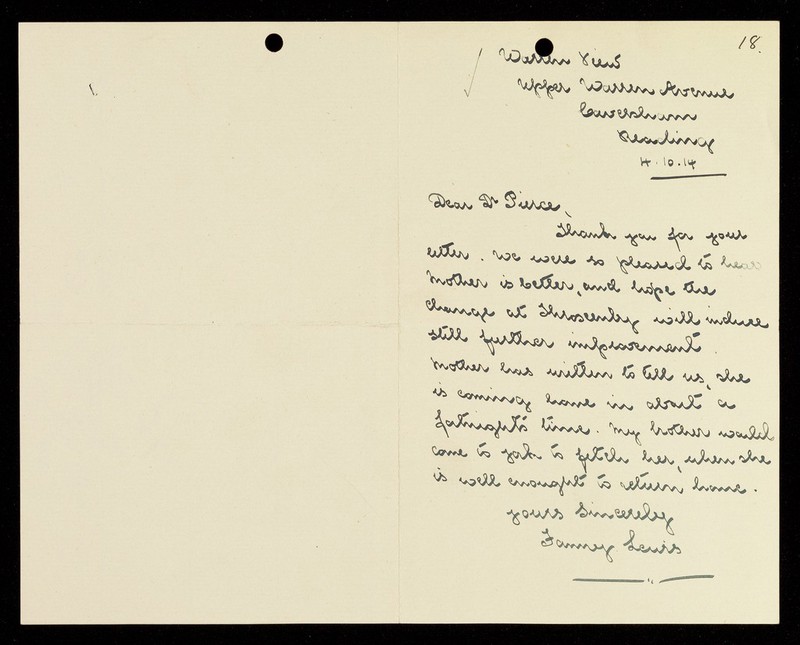 18.
Warren View
Upper Warren Avenue
Caversham
Reading
4.10.14
Dear Dr Pierce,
Thank you for your
letter. We were so pleased to hear
Mother is better, and hope the
change at Throxenby will induce
still further improvement.
Mother has written to tell us, she
is coming home in about a
fortnights time. My brother would
come to York to fetch her, when she
is well enought to return home.
Yours Sincerely
Fanny Lewis